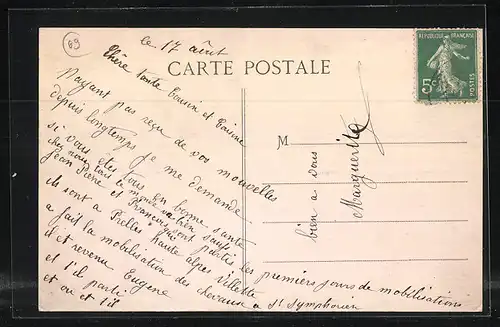 69
le 17 août
CARTE POSTALE
RÉPUBLIQUE FRANÇAISE
5c
POSTES
Chère tante Cousin et Cousine
N'ayant pas reçu de vos nouvelles
depuis longtemps je me demande
si vous êtes tous en bonne santé
chez nous tout le monde va bien sauf
Jean Pierre et François qui sont partis les premiers jours de mobilisation
ils sont a Prelles Hautes alpes Villette
a fait la mobilisation des chevaux a St Symphorien
il et revenu Eugène
et t'il parti
et ou et t'il
M
bien a vous
Marguerite